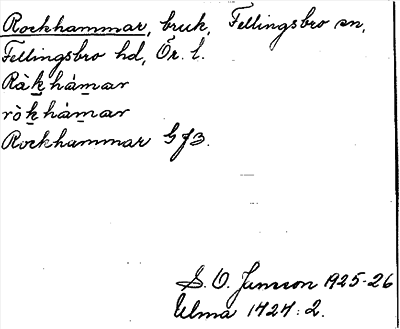 Rockhammar, bruk, Fellingsbro sn,
Fellingsbro hd, Ör. l.
Ràkhámar
ròkhámar
Rockhammar GJB.
S. O. Jansson 1925-26
Ulma 1424:2.